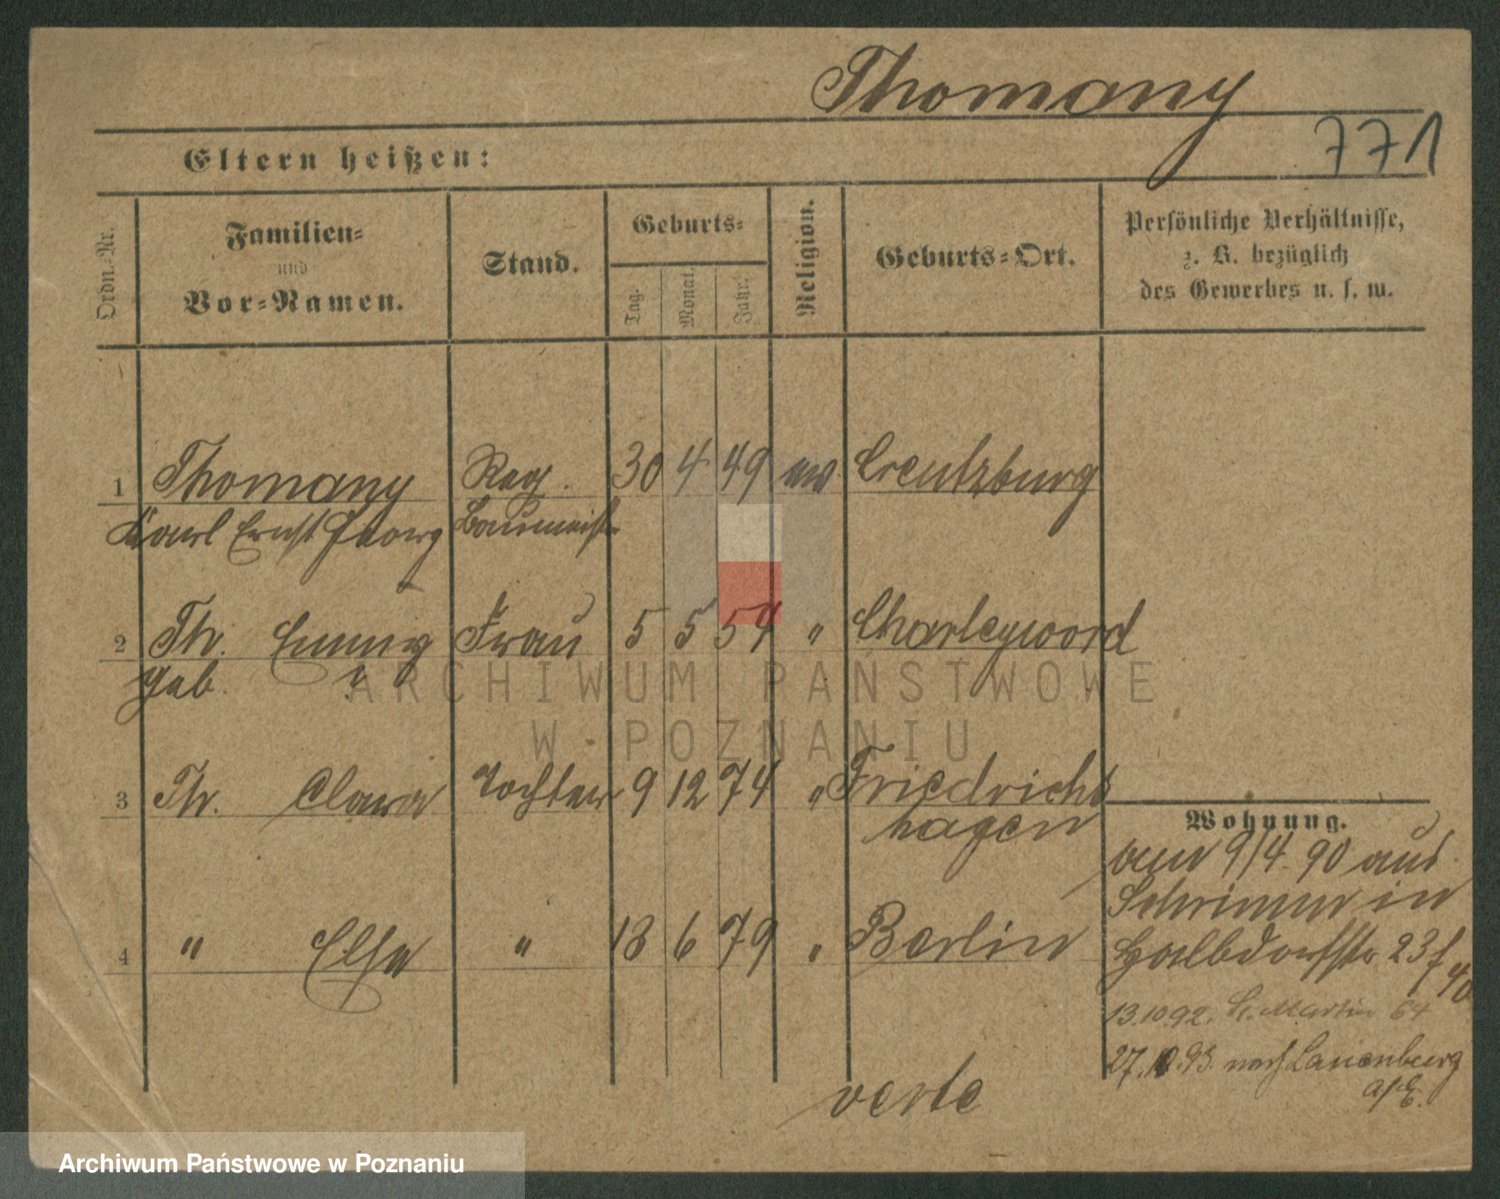 Thomany
771
Eltern heißen:
Ordn.-Nr.
Familien-
und
Vor-Namen.
Stand.
Geburts-
Tag.
Monat.
Jahr.
Religion.
Geburts-Ort.
Persönliche Verhältnisse,
z. B. bezüglich
des Gewerbes u. s. w.
1 Thomany Reg. 30 4 49 ev Creutzburg
Karl Ernst Georg Baumeister
2 Th. Emmy Frau 5 5 54 " Charleywoord
geb. ?
3 Th. Clara Tochter 9 12 74 " Friedrichs
hagen
4 " Else " 18 6 79 " Berlin
Wohnung.
am 9/4 90 aus
Schrimm in
Halbdorfstr 23
13.10.92. St. Martin 64
27.10.93. nach Lauenburg
a/E.
verte
ARCHIWUM PAŃSTWOWE
W POZNANIU
Archiwum Państwowe w Poznaniu